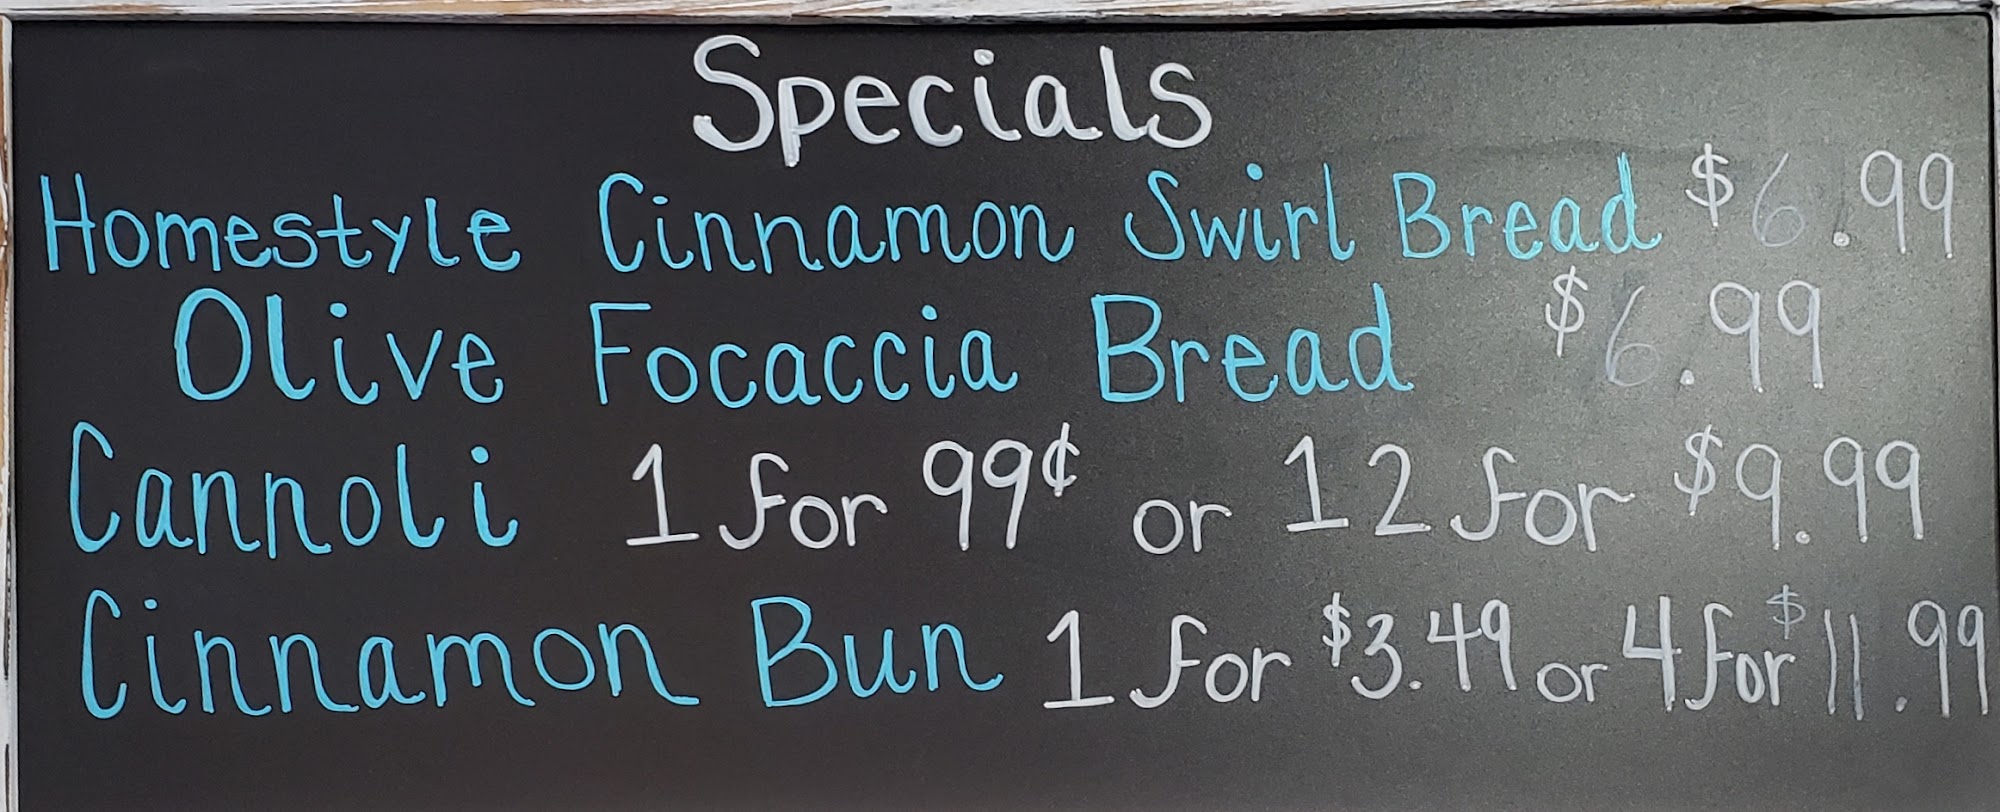 Specials
Homestyle Cinnamon Swirl Bread $6.99
Olive Focaccia Bread $6.99
Cannoli 1 for 99¢ or 12 for $9.99
Cinnamon Bun 1 for $3.49 or 4 for $11.99